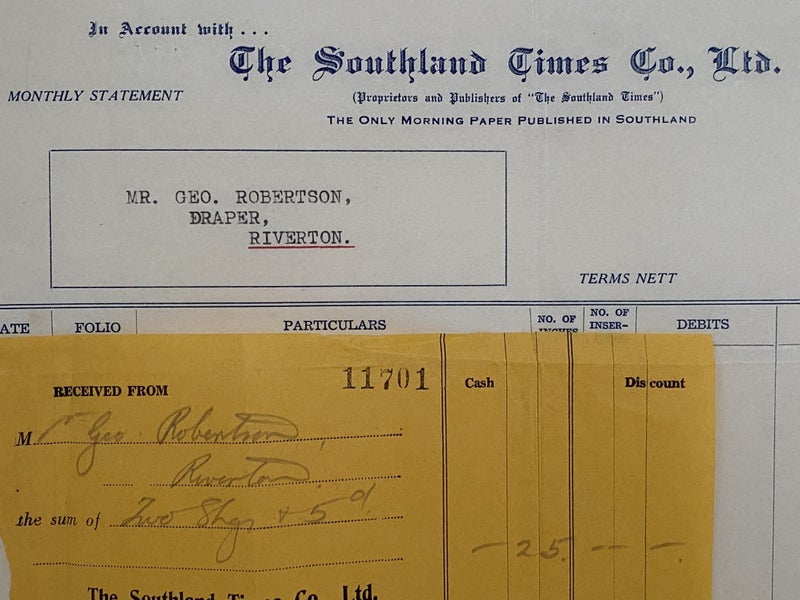 In Account with...
The Southland Times Co., Ltd.
MONTHLY STATEMENT
(Proprietors and Publishers of "The Southland Times")
THE ONLY MORNING PAPER PUBLISHED IN SOUTHLAND
MR. GEO. ROBERTSON,
DRAPER,
RIVERTON.
TERMS NETT
ATE FOLIO PARTICULARS NO. OF INCHES NO. OF INSER- DEBITS
RECEIVED FROM 11701 Cash Discount
Mr Geo. Robertson,
Riverton
the sum of Two Shgs + 5d.
- 2 5. -- -.
The Southland Times Co., Ltd.